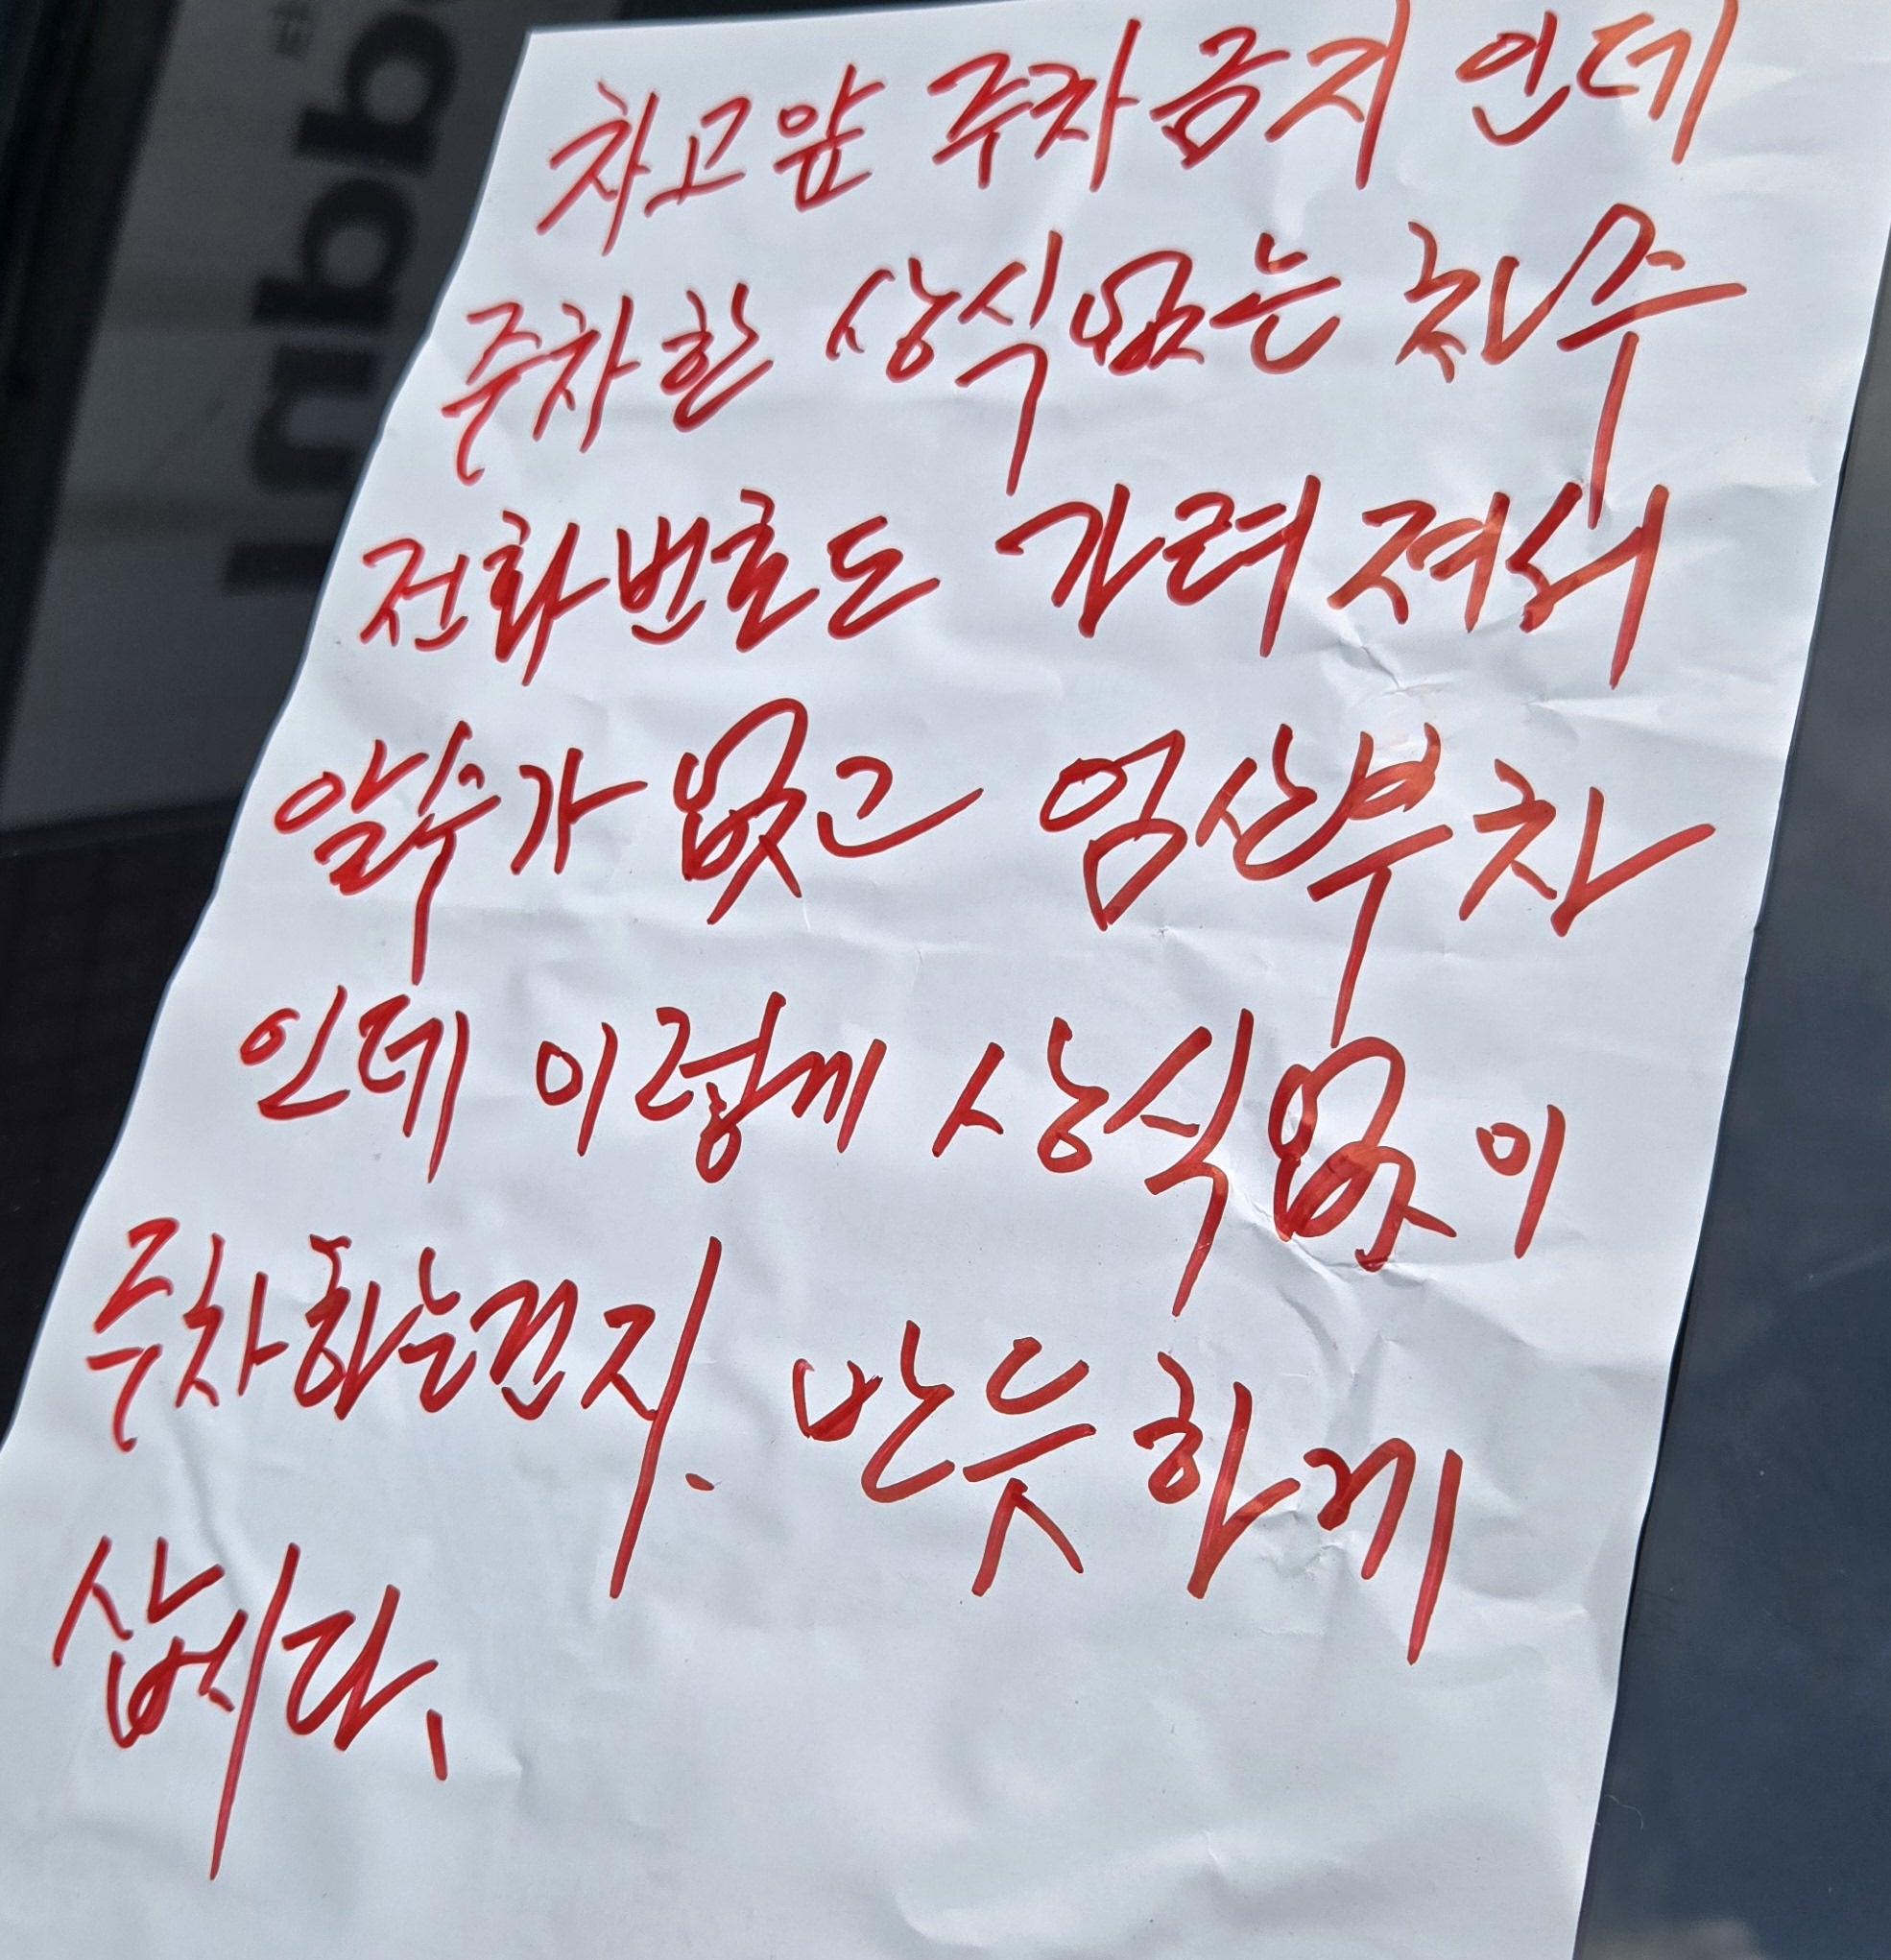 차고앞 주차금지 인데
주차한 상식없는 차주
전화번호도 가려져서
알수가 없고 임산부차
인데 이렇게 상식없이
주차하는건지. 반듯하게
삽시다.